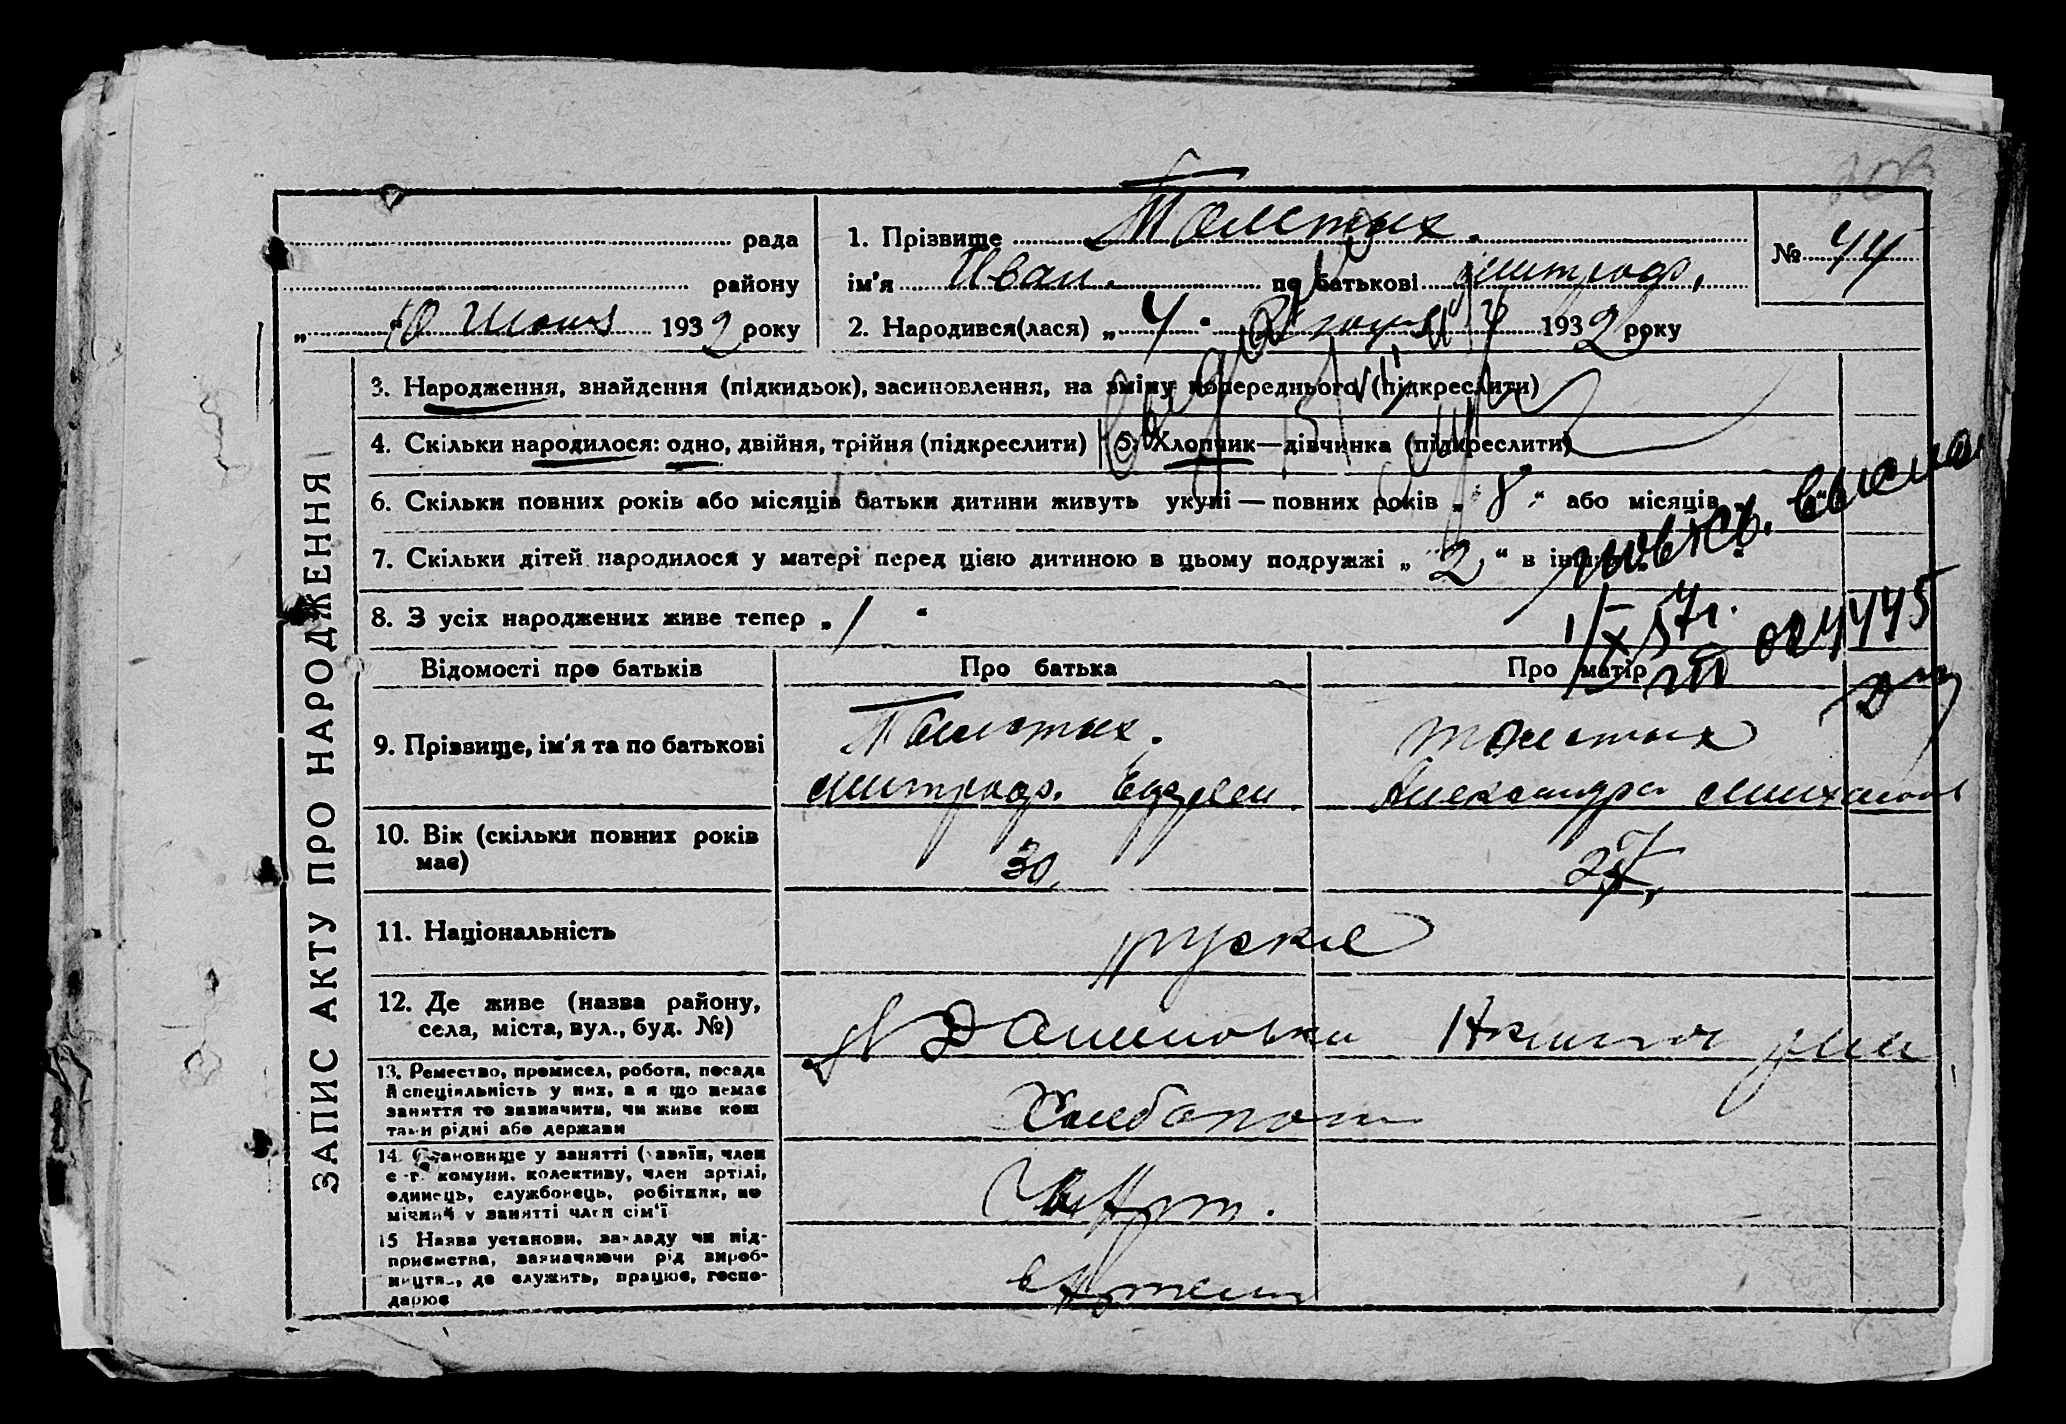 рада
району
„ 10 Июня 1932 року
1. Прізвище Толстых.
ім'я Иван. по батькові Митроф.
2. Народився(лася) „ 4 " 1932 року
№ 44
ЗАПИС АКТУ ПРО НАРОДЖЕННЯ
3. Народження, знайдення (підкидьок), засиновлення, на зміну попереднього (підкреслити)
4. Скільки народилося: одно, двійня, трійня (підкреслити) 5. Хлопчик—дівчинка (підкреслити)
6. Скільки повних років або місяців батьки дитини живуть укупі — повних років „ 8 “ або місяців
7. Скільки дітей народилося у матері перед цією дитиною в цьому подружжі „ 2 “ в
8. З усіх народжених живе тепер „ 1 “
Відомості про батьків
Про батька
Про матір
9. Прізвище, ім'я та по батькові
Толстых.
Митроф.
Толстых
Александра
10. Вік (скільки повних років
має)
30.
27
11. Національність
руские
12. Де живе (назва району,
села, міста, вул., буд. №)
13. Ремество, промисел, робота, посада
й спеціяльність у них, а я що немає
заняття то зазначити, чи живе кош
тами рідні або держави
Хлебопаш
14. Становище у занятті (хазяїн, член
с.-г. комуни, колективу, член артілі,
одинець, службовець, робітник, по
мічний у занятті член сім'ї
Чл Арт.
15 Назва установи, закладу чи під-
приємства, зазначаючи рід вироб-
ництва, де служить, працює, госпо-
дарює
в Артели